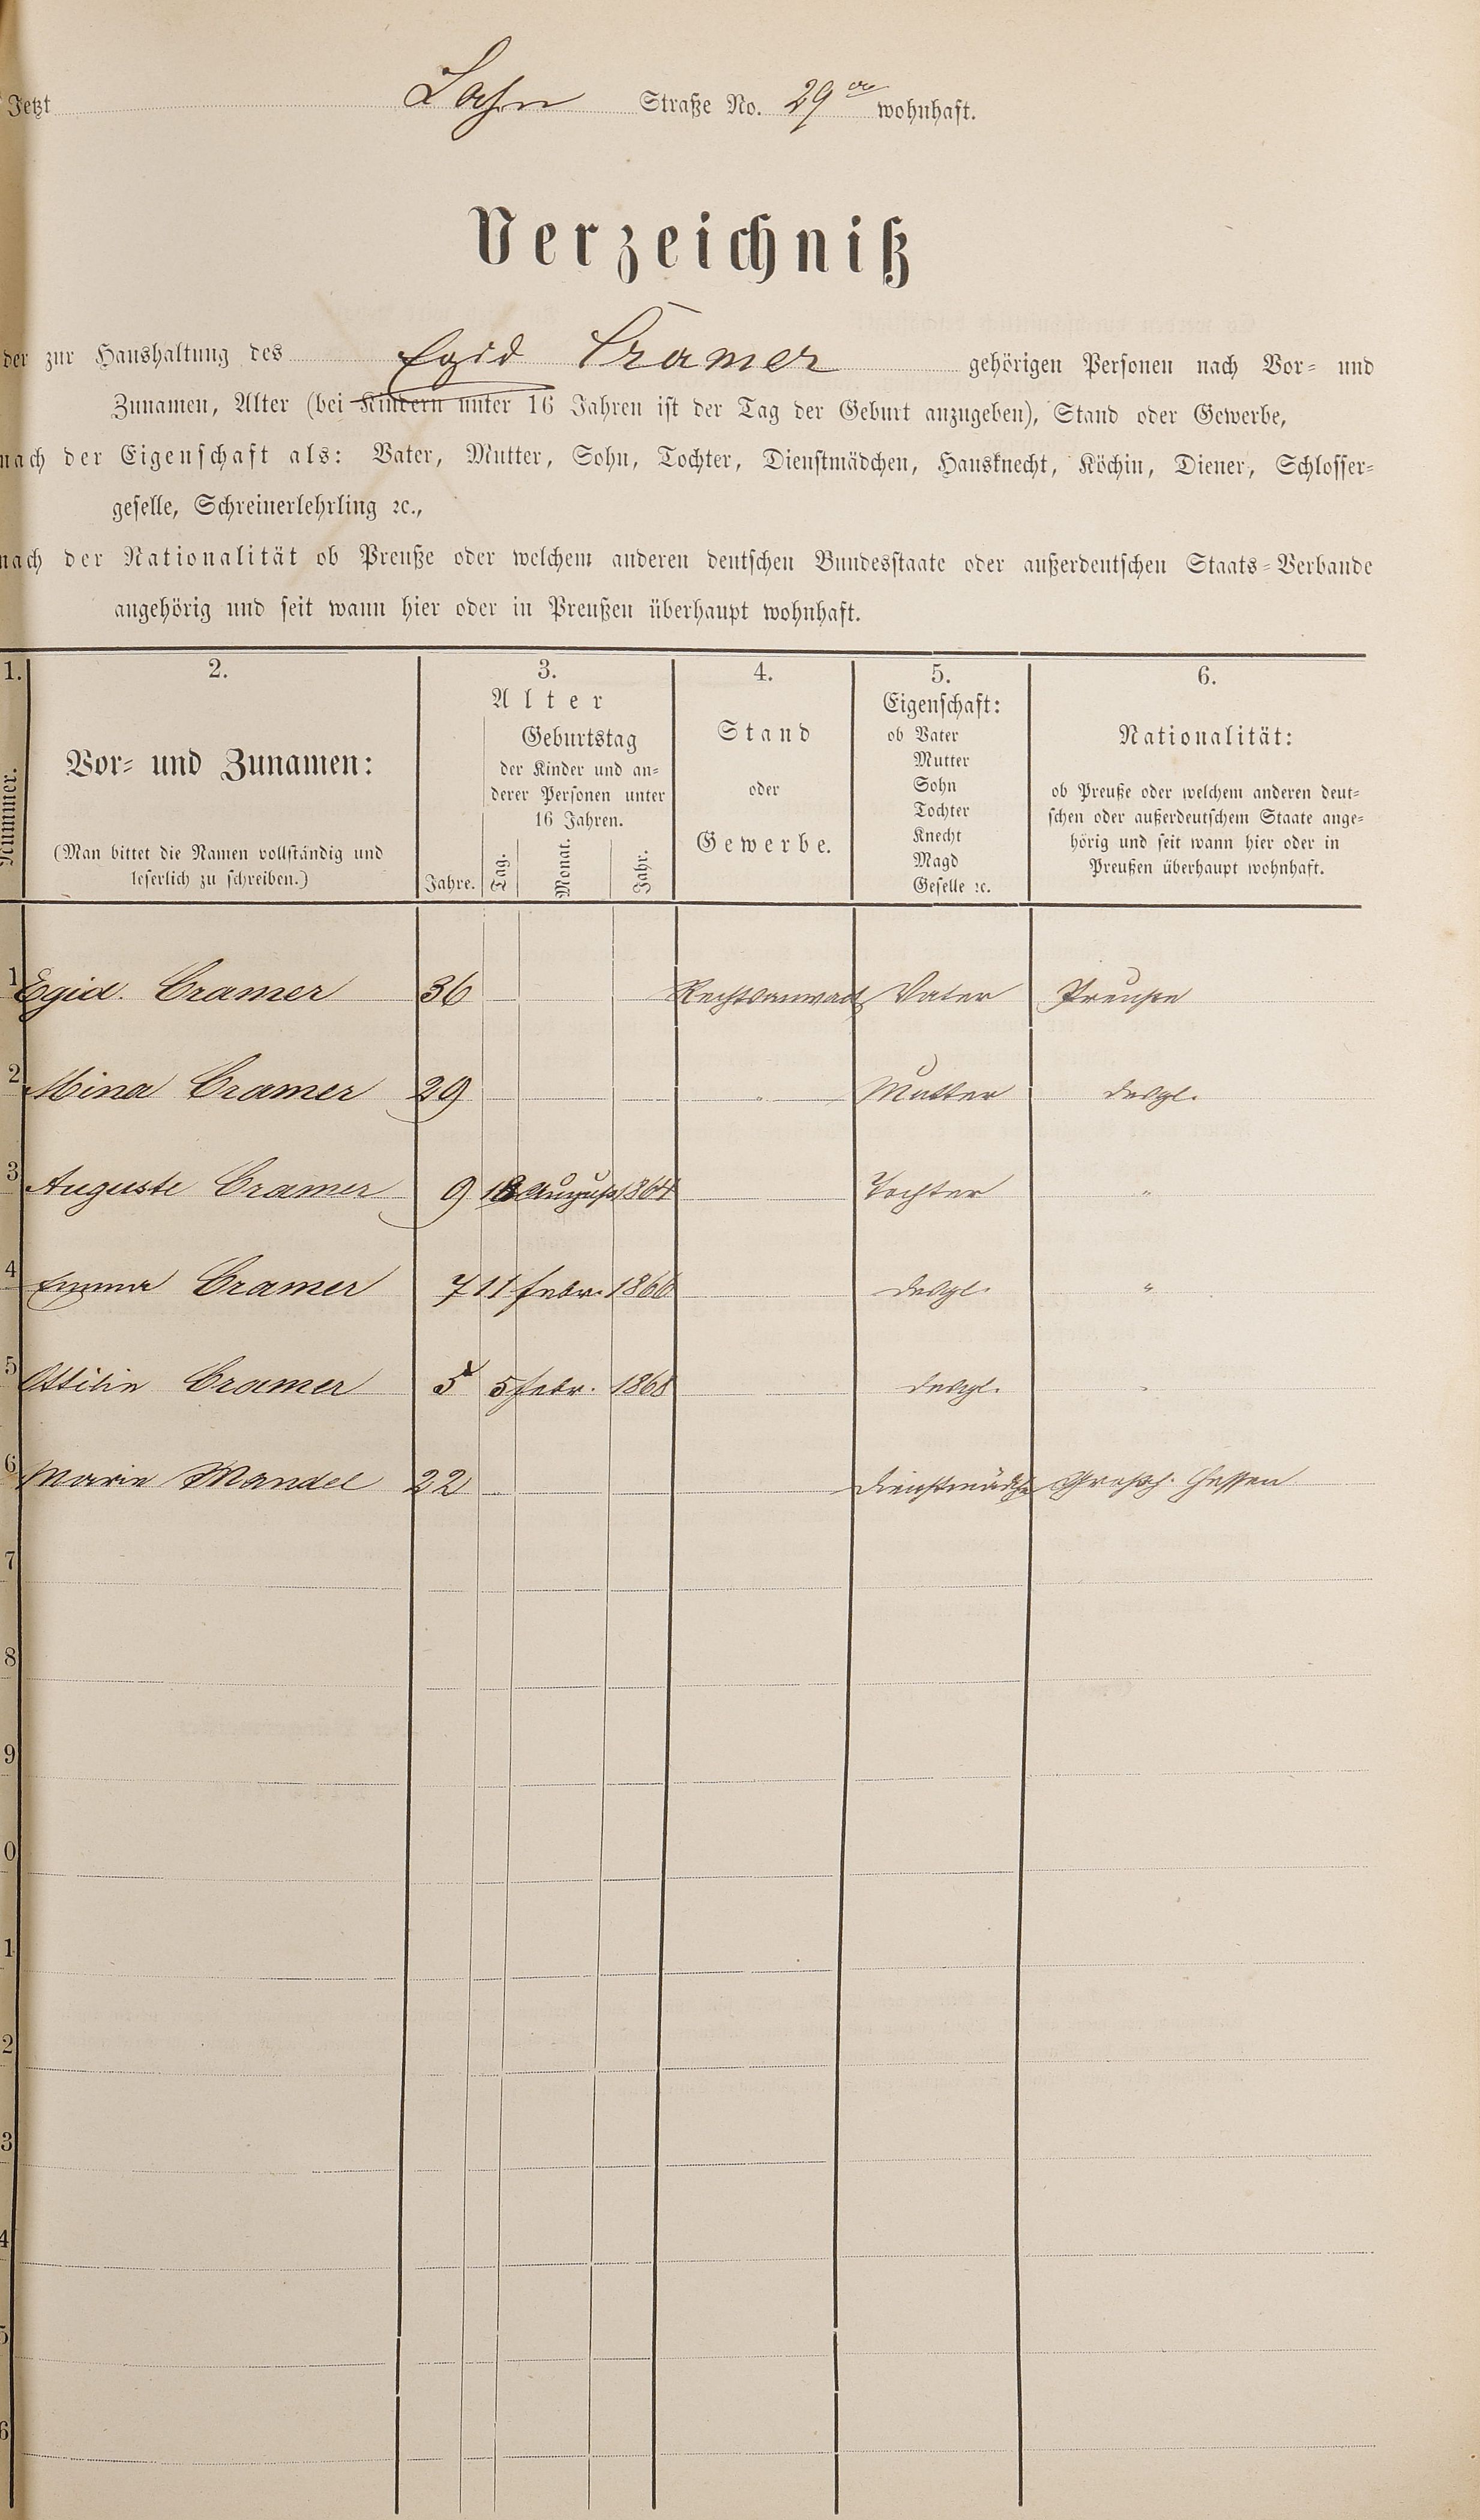 Jetzt Lahn Straße No. 29 wohnhaft.
Verzeichniß
der zur Haushaltung des Egid Cramer gehörigen Personen nach Vor= und
Zunamen, Alter (bei Kindern unter 16 Jahren ist der Tag der Geburt anzugeben), Stand oder Gewerbe,
nach der Eigenschaft als: Vater, Mutter, Sohn, Tochter, Dienstmädchen, Hausknecht, Köchin, Diener, Schlosser=
geselle, Schreinerlehrling ꝛc.,
nach der Nationalität ob Preuße oder welchem anderen deutschen Bundesstaate oder außerdeutschen Staats=Verbande
angehörig und seit wann hier oder in Preußen überhaupt wohnhaft.
1. 2. 3. 4. 5. 6.
Nummer.
Vor= und Zunamen:
(Man bittet die Namen vollständig und
leserlich zu schreiben.)
Alter
Jahre.
Geburtstag
der Kinder und an=
derer Personen unter
16 Jahren.
Tag. Monat. Jahr.
Stand
oder
Gewerbe.
Eigenschaft:
ob Vater
Mutter
Sohn
Tochter
Knecht
Magd
Geselle ꝛc.
Nationalität:
ob Preuße oder welchem anderen deut=
schen oder außerdeutschem Staate ange=
hörig und seit wann hier oder in
Preußen überhaupt wohnhaft.
1 Egid. Cramer 36 Rechtsanwalt Vater Preuße
2 Mina Cramer 29 " Mutter desgl.
3 Auguste Cramer 9 August 1864 Tochter "
4 Emma Cramer 7 11 Febr. 1866 desgl. "
5 Ottilie Cramer 5 5 Febr. 1868 desgl. "
6 Marie Mandel 22 Dienstmädchen Großh. Hessen
7
8
9
0
1
2
3
4
5
6